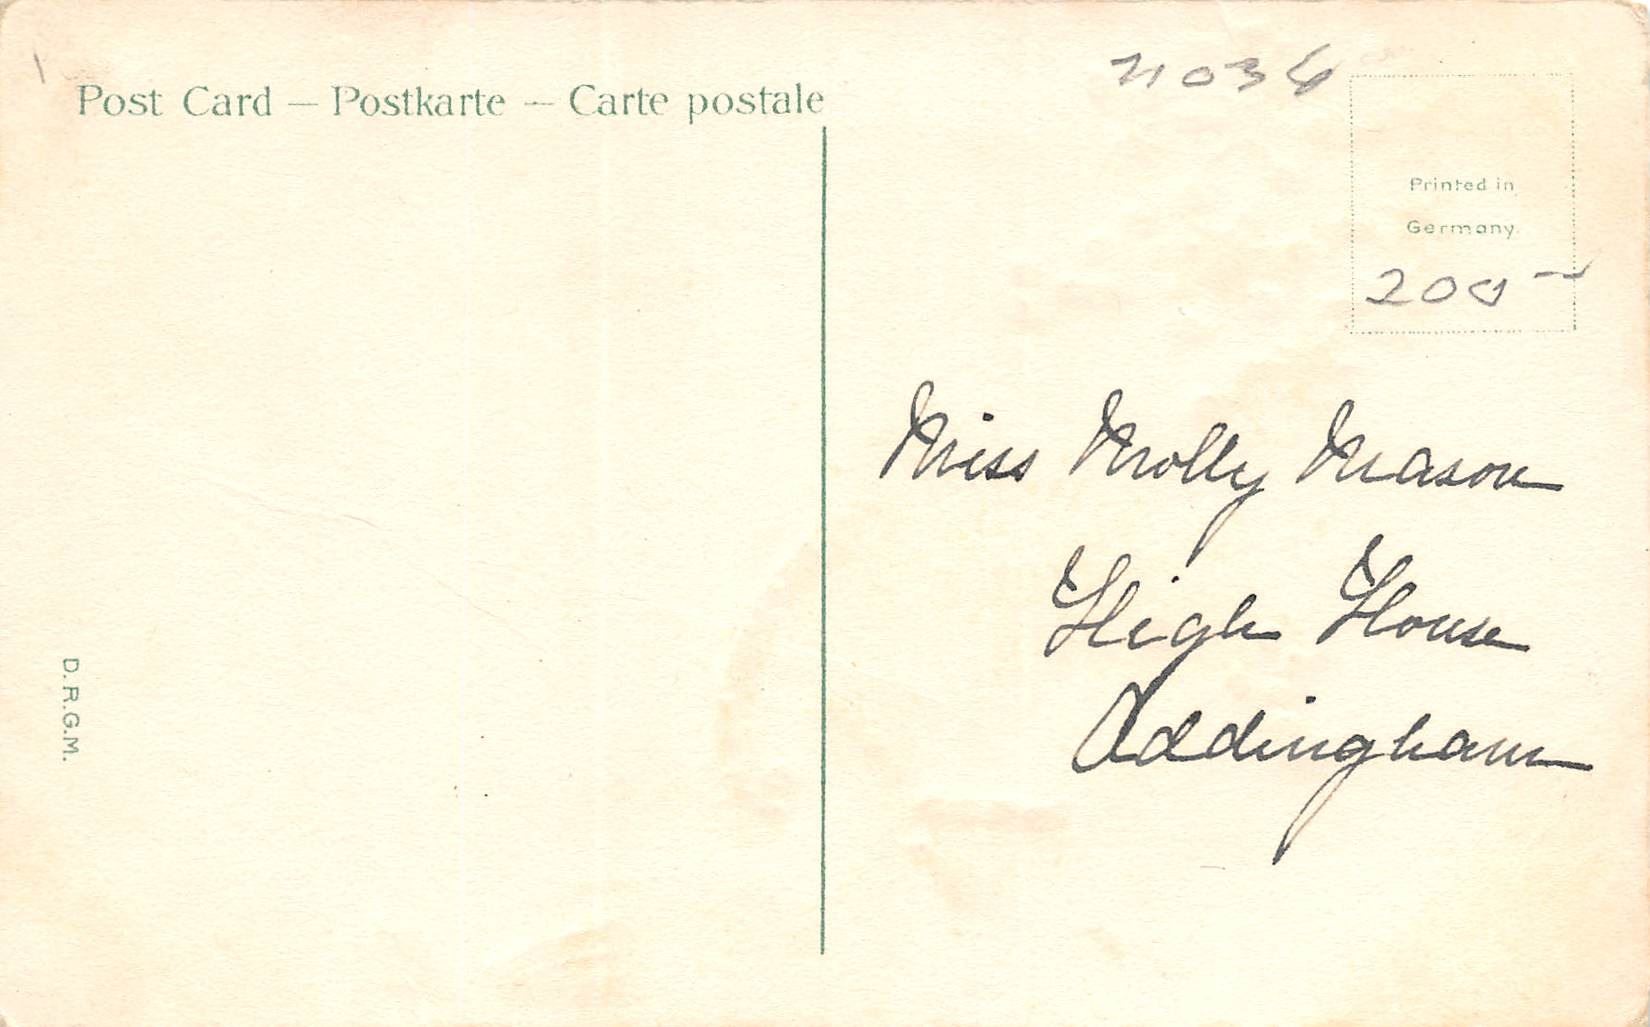 Post Card — Postkarte — Carte postale
Printed in
Germany.
Miss Molly Mason
High House
Addingham
D.R.G.M.